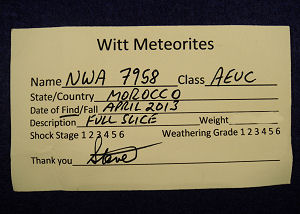 Witt Meteorites
Name NWA 7958 Class AEUC
State/Country MOROCCO
Date of Find/Fall APRIL 2013
Description FULL SLICE Weight
Shock Stage 1 2 3 4 5 6 Weathering Grade 1 2 3 4 5 6
Thank you Steve